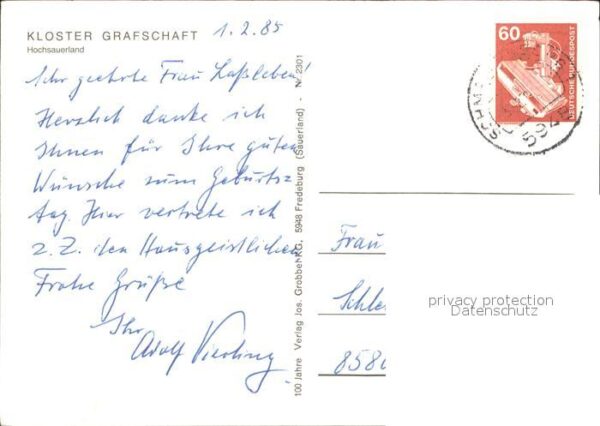 KLOSTER GRAFSCHAFT 1.2.85
Hochsauerland
Sehr geehrte Frau Laßleben!
Herzlich danke ich
Ihnen für Ihre guten
Wünsche zum Geburts=
tag. Hier vertrete ich
z.Z. den Hausgeistlichen
Frohe Grüße
Ihr
Adolf Vierling
100 Jahre Verlag Jos. Grobbel KG, 5948 Fredeburg (Sauerland) - Nr. 2301
60
DEUTSCHE BUNDESPOST
SCHM
5948
Frau
Schle
8580
privacy protection
Datenschutz